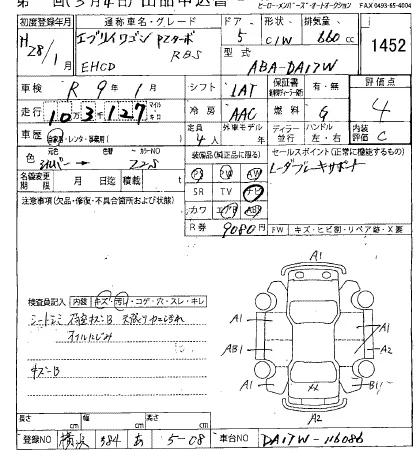 ヒーローメンバーズ・オートオークション FAX 0493-65-4004
初度登録年月 通称車名・グレード ドア 形状 排気量
H28/1月 エブリイワゴン PZターボ RBS 5 C/W 660cc
EHCD 型式 ABA-DA17W
1452
車検 R 9年 月 シフト LAT 保証書 有・無 評価点
走行 10万3千127 マイル キロ 冷房 AAC 燃料 G 4
車歴 自家用・レンタ・事業用 定員 4人 外車モデル 年 ディーラー 並行 ハンドル 左・右 内装評価 C
色 元色 シルバー カラーNO Z2S 装備品(純正品に限る) セールスポイント(正常に機能するもの)
名義変更期限 月 日迄 積載 t PS PW AW レーダブレーキサポート
注意事項(欠品・修復・不具合箇所および状態) SR TV ナビ
カワ エアB ABS
R券 9080円 FW キズ・ヒビ割・リペア跡・X要
検査員記入 内装 キズ・汚レ・コゲ・穴・スレ・キレ
オイルにじみ
キズ-B
A1
A1 A1
AB1 A2
A1 B1
A2
長さ cm 幅 cm 高さ cm
登録NO 横浜 384 あ 5-08 車台NO DA17W-116086